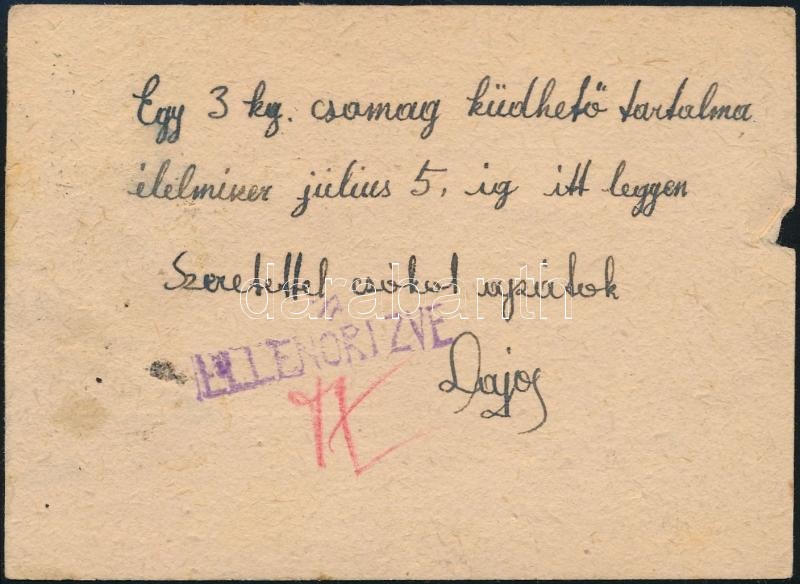 Egy 3 kg. csomag küdhető tartalma
élelmiszer július 5, ig itt leggen
Szeretettel csókol apátok
darabanth
ELLENŐRIZVE
Lajos